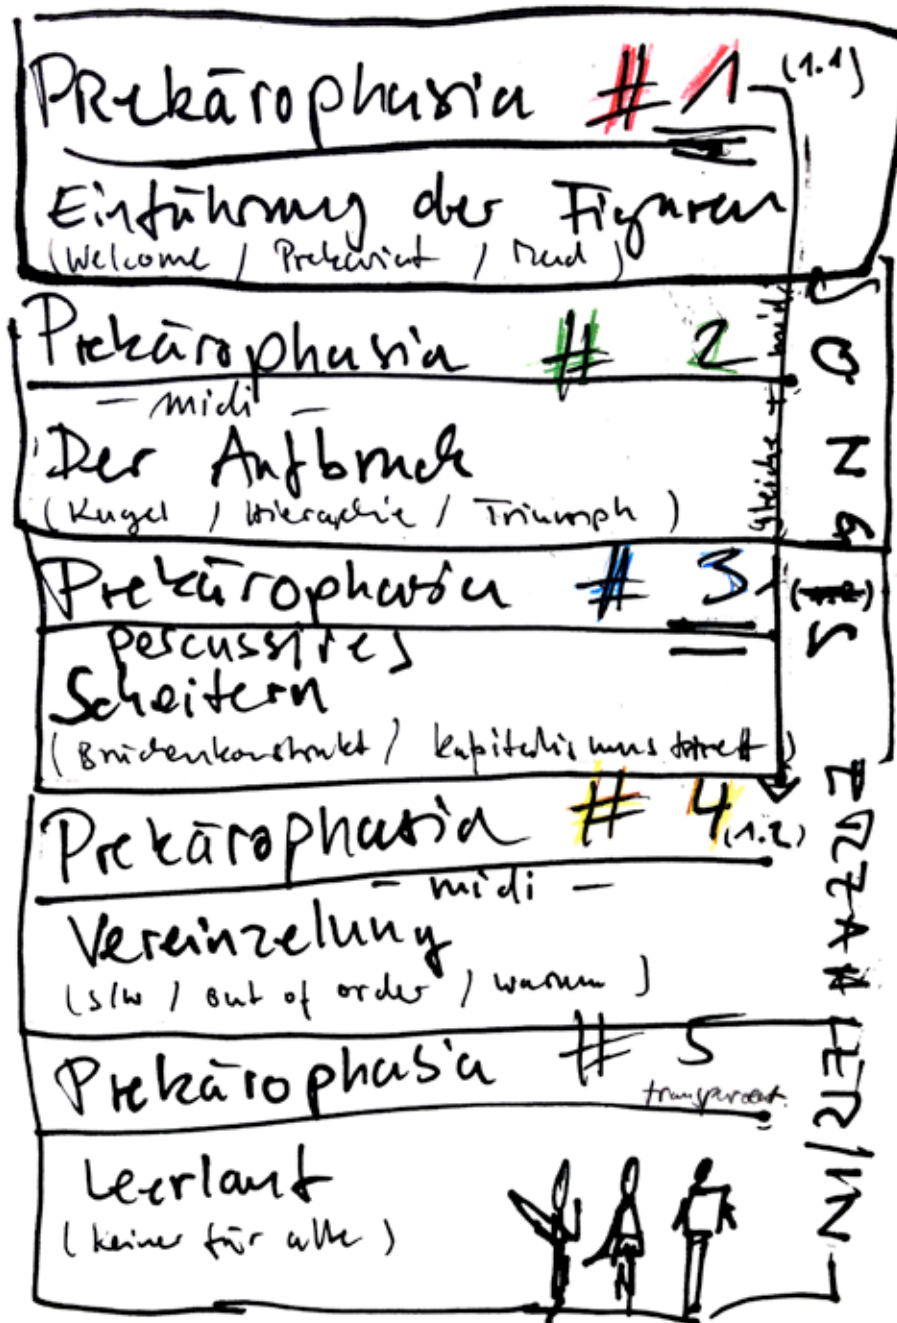 Prekärophasia # 1 (1.1)
Einführung der Figuren
(Welcome / Prekariat / )
Prekärophasia # 2
- midi -
Der Aufbruch
(Kugel / Hieraphie / Triumph)
Prekärophasia # 3
percussives
Scheitern
(Brückenkonstrukt / Kapitalismus)
Prekärophasia # 4 (1.2)
- midi -
Vereinzelung
(s/w / out of order / warum)
Prekärophasia # 5
transparent
Leerlauf
(keiner für alle)
gleiche + midi
SONGS